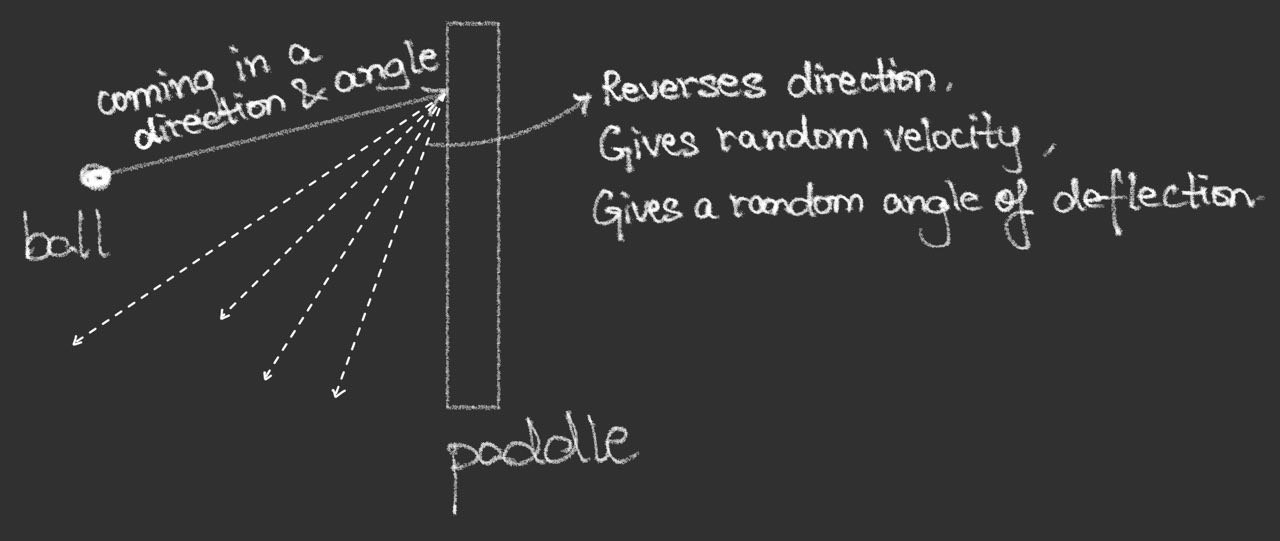 coming in a
direction & angle
Reverses direction.
Gives random velocity,
Gives a random angle of deflection.
ball
paddle